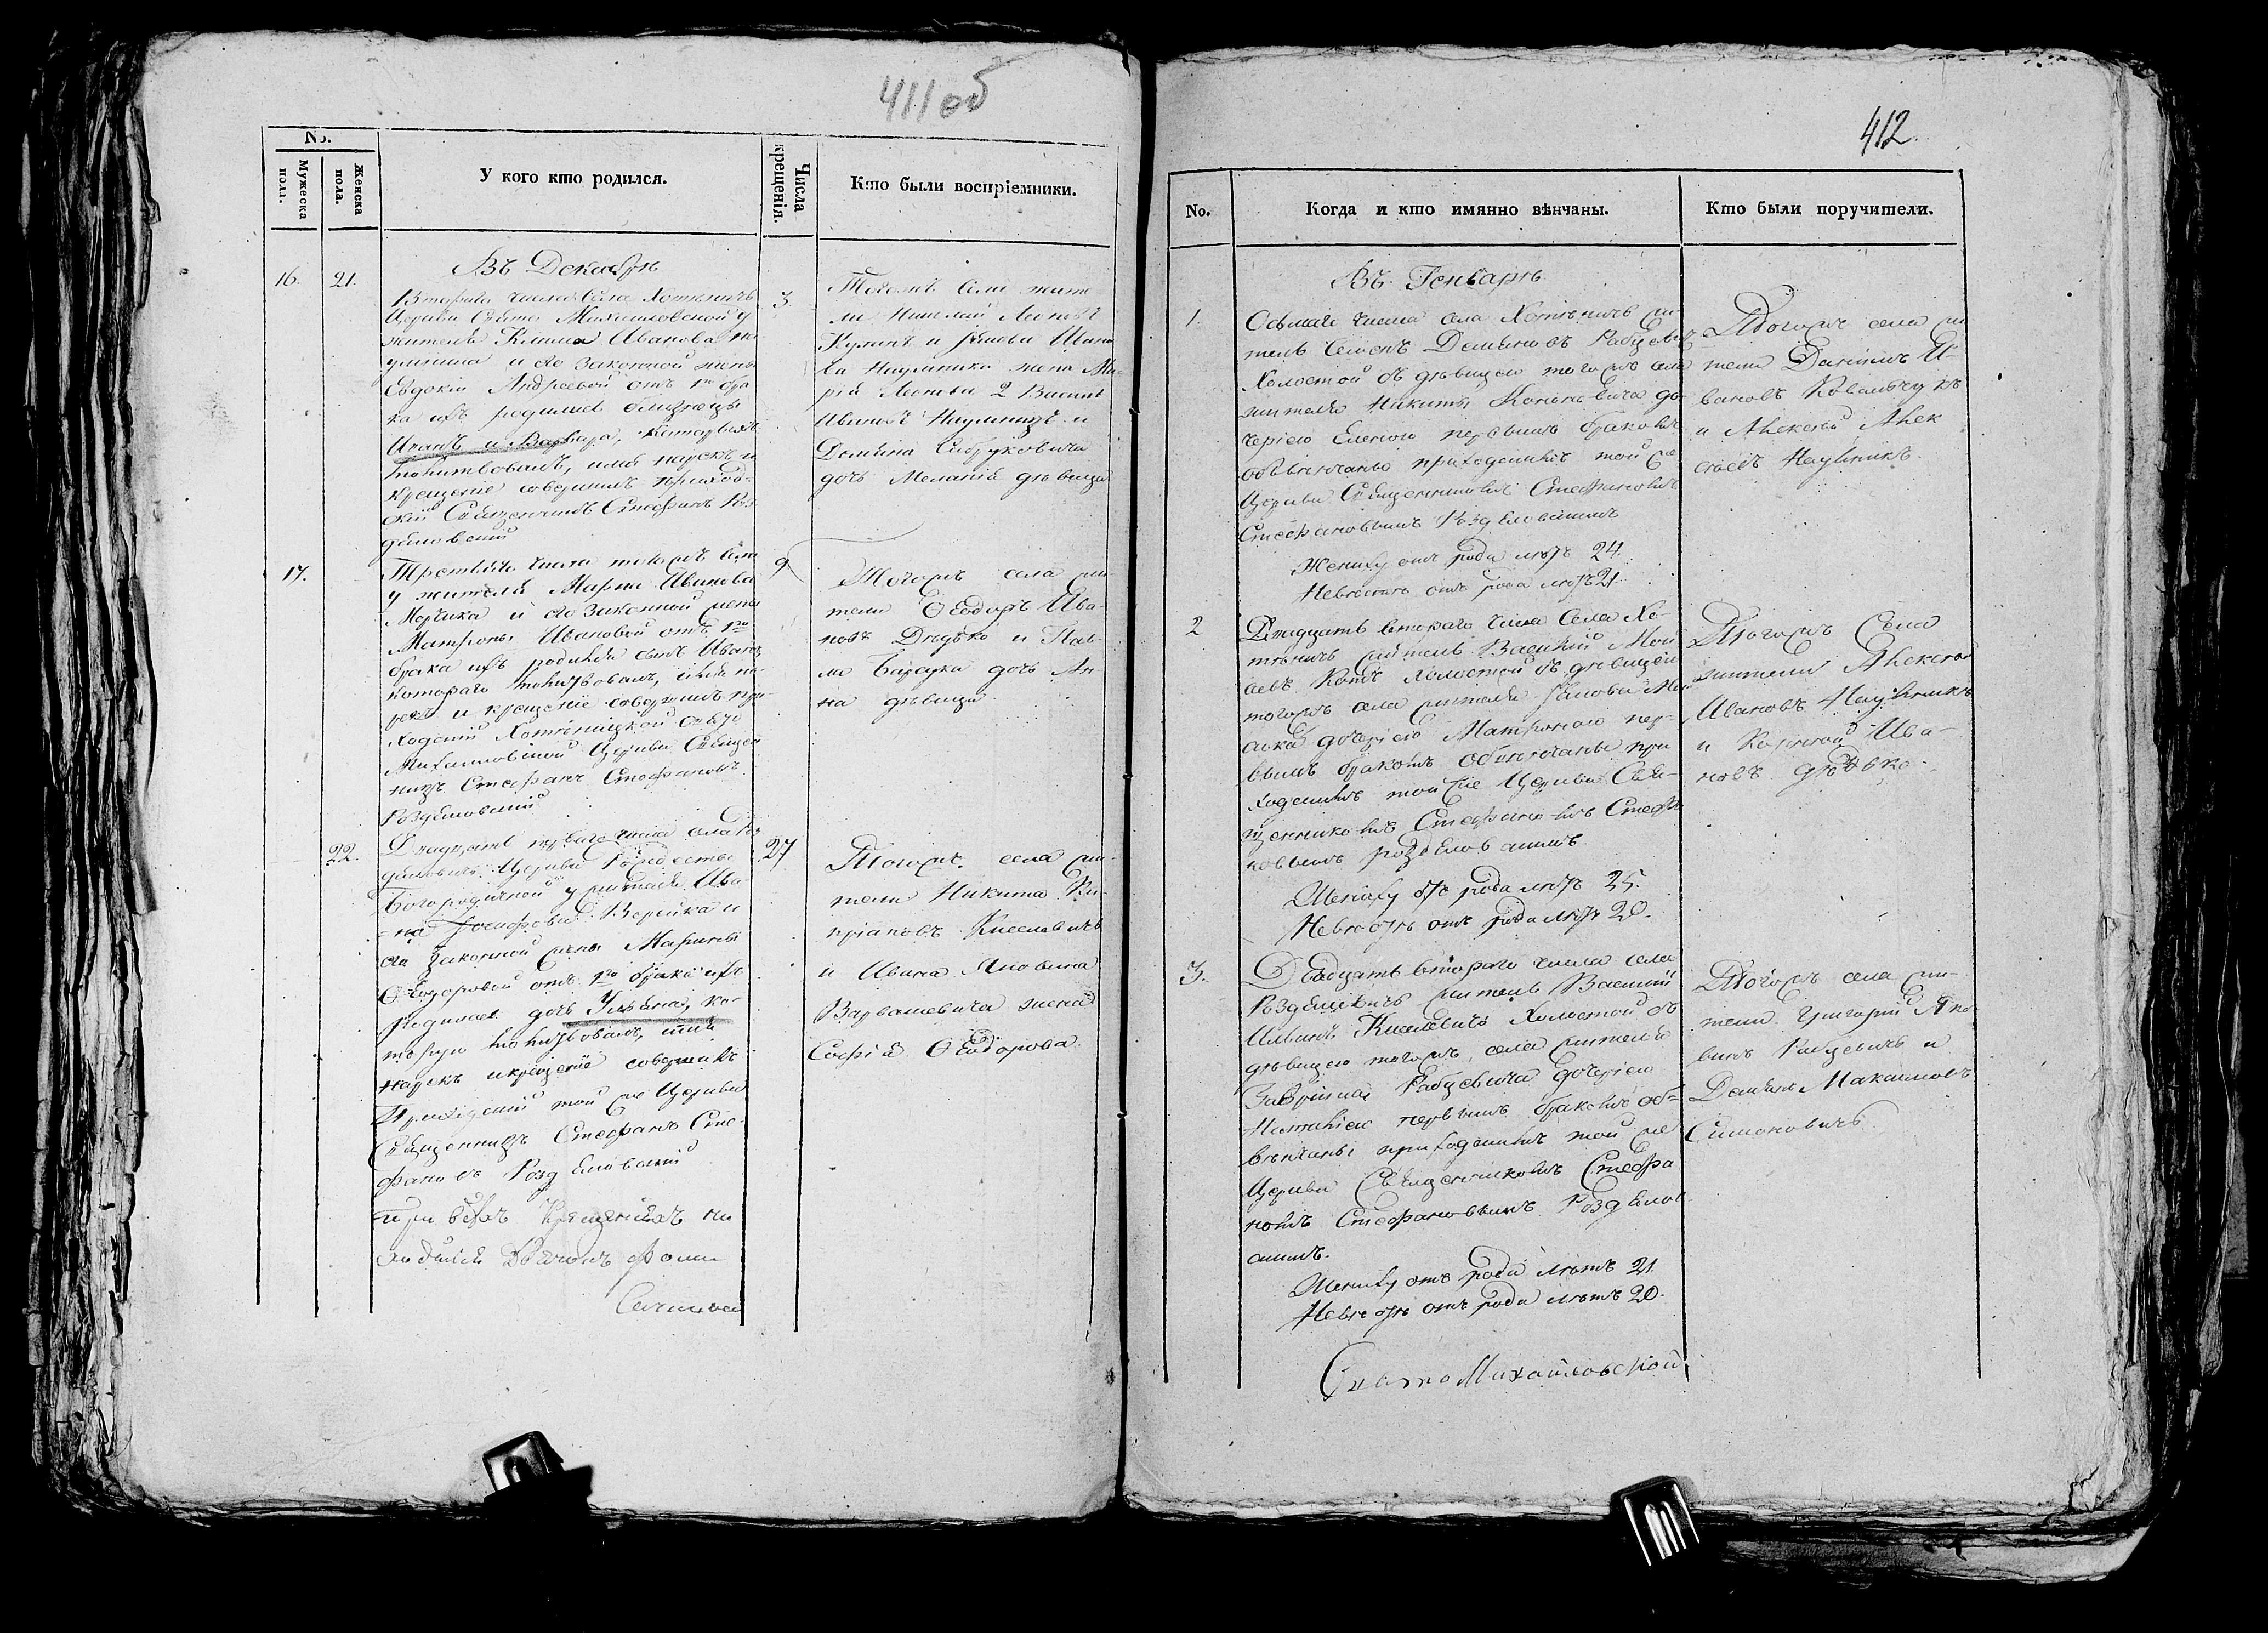 411 об
No.
Мужеска пола.
Женска пола.
У кого кто родился.
Числа крещенія.
Кто были воспріемники.
Въ Декабрѣ
16. 21.
Втораго числа села Хотѣничъ
Церкви Свято Михайловской у
жителя Климы Иванова На
умчика и его законной жены
Евдокіи Андреевой отъ 1го бра
ка ихъ родились близнецы
Иванъ и Варвара, которыхъ
молитвовалъ, имя нарекъ и
крещеніе совершилъ приход-
скій Священникъ Стефанъ Роз
дяловскій
3.
Тогожъ села жите
ли Николай Леоновъ
и Иакова Ивано
ва Наумчика жена Ма
рія Леонова 2 Василій
Ивановъ Наумчикъ и
Демьяна
дочь Меланія дѣвица
17.
Третьяго числа тогожъ села
у жителя Марка Иванова
и его законной жены
Матроны Ивановой отъ 1го
брака ихъ родился сынъ Иванъ
котораго молитвовалъ, имя на-
рекъ и крещеніе совершилъ при-
ходскій Хотѣницкой Свято
Михайловской Церкви Священ
никъ Стефанъ Стефановъ
Роздяловскій
9
Тогожъ села жи-
тели Ѳеодоръ Ива-
новъ Дѣдько и Пав-
ла дочь Ан
на дѣвица
22.
Двадцать перваго числа села Роз
дяловичъ Церкви Рождество
Богородичной у жителя Ива-
на Іосифова и
его законной жены Марины
Ѳеодоровой отъ 1го брака ихъ
родилась дочь Ульяна, ко-
торую молитвовалъ, имя
нарекъ и крещеніе совершилъ
Приходскій той же Церкви
Священникъ Стефанъ Сте-
фановъ Роздяловскій
27
Тогожъ села жи-
тели Никита Ки-
пріановъ Киселевичъ
и Ивана Яковлева
Варвашевича жена
Софія Ѳеодорова.
при всѣхъ Крещеніяхъ на
ходился Дьячокъ Фома
412
No.
Когда и кто имянно вѣнчаны.
Кто были поручители.
Въ Генварѣ
1.
Осьмаго числа села Хотѣничъ жи
тель Семенъ Демьяновъ Рабцевич
Холостой съ дѣвицею тогожъ села
жителя Никиты Кононовича до-
черію Еленою первымъ бракомъ
обвѣнчаны приходскимъ той же
Церкви Священникомъ Стефаномъ
Стефановымъ Роздяловскимъ
Жениху отъ рода лѣтъ 24.
Невѣстѣ отъ рода лѣтъ 21.
Тогожъ села жи
тели Даніилъ И-
вановъ Ковальчукъ
и Алексѣй Алек
сѣевъ Наумчикъ.
2
Двадцать втораго числа села Хо-
тѣничъ житель Василій Мои
сѣевъ Котъ Холостой съ дѣвицею
тогожъ села жителя Іакова
дочерію Матроною пер-
вымъ бракомъ обвѣнчаны при
ходскимъ той же Церкви Свя-
щенникомъ Стефаномъ Стефа
новымъ Роздяловскимъ.
Жениху отъ рода лѣтъ 25.
Невѣстѣ отъ рода лѣтъ 20.
Тогожъ Села
жители Алексѣй
Ивановъ Наумчикъ
и Корней Ива-
новъ Дѣдько.
3.
Двадцать втораго числа села
Роздяловичъ житель Василій
Ивановъ Киселевичъ Холостой съ
дѣвицею тогожъ села жителя
Рабцевича дочерію
Наталіею первымъ бракомъ об-
вѣнчаны приходскимъ той же
Церкви Священникомъ Стефа
номъ Стефановымъ Роздялов
скимъ.
Жениху отъ рода лѣтъ 21
Невѣстѣ отъ рода лѣтъ 20.
Тогожъ села жи-
тели Григорій Яко
влевъ Рабцевичъ и
Демьянъ Максимовъ
Симоновичъ
Свято Михайловской